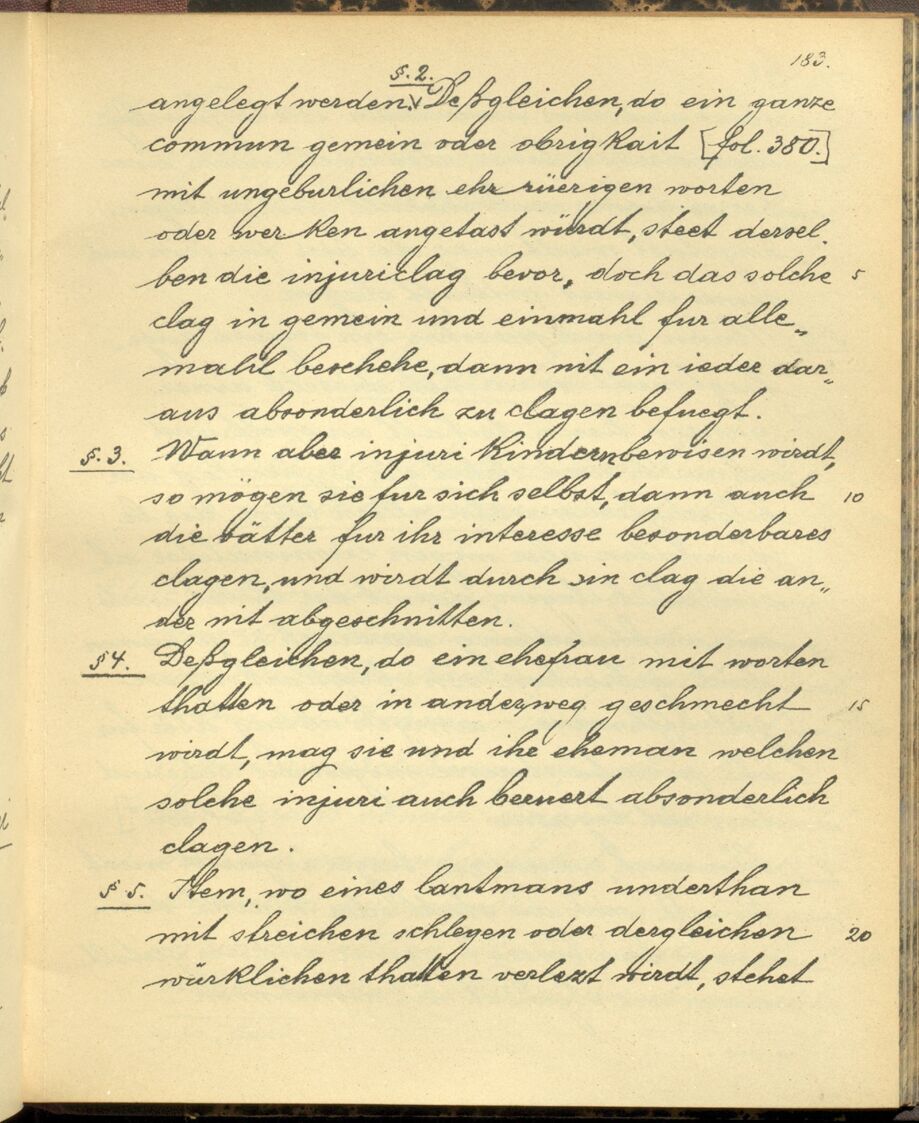 183.
§. 2.
angelegt werden. Deßgleichen, do ein ganze
commun gemein oder obrigkait [fol. 380.]
mit ungeburlichen ehrrüerigen worten
oder werken angetast würdt, steet dersel-
ben die injuriclag bevor, doch das solche 5
clag in gemein und einmahl fur alle„
mahl beschehe, dann nit ein ieder dar„
aus absonderlich zu clagen befuegt.
§. 3. Wann aber injuri kindern bewisen wirdt,
so mögen sie fur sich selbst, dann auch 10
die vätter fur ihr interesse besonderbares
clagen, und wirdt durch ein clag die an„
der nit abgeschnitten.
§ 4. Deßgleichen, do ein ehefrau mit worten
thatten oder in anderweg geschmecht 15
wirdt, mag sie und ihr eheman welchen
solche injuri auch beruert absonderlich
clagen.
§ 5. Item, wo eines lantmans underthan
mit streichen schlegen oder dergleichen 20
würklichen thatten verlezt wirdt, stehet